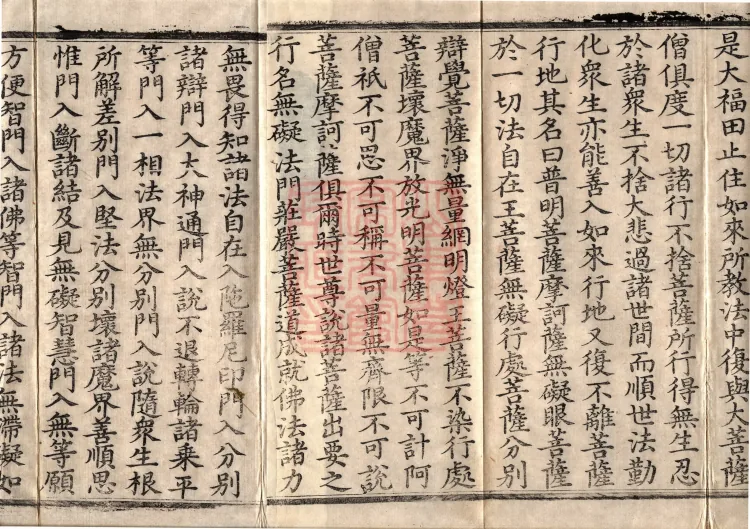 是大福田止住如來所教法中復與大菩薩
僧俱度一切諸行不捨菩薩所行得無生忍
於諸衆生不捨大悲過諸世間而順世法勤
化衆生亦能善入如來行地又復不離菩薩
行地其名曰普明菩薩摩訶薩無礙眼菩薩
於一切法自在王菩薩無礙行處菩薩分別
辯覺菩薩淨無量網明燈王菩薩不染行處
菩薩壞魔界放光明菩薩如是等不可計阿
僧祇不可思不可稱不可量無齊限不可說
菩薩摩訶薩俱爾時世尊說諸菩薩出要之
行名無礙法門莊嚴菩薩道成就佛法諸力
無畏得知諸法自在入陁羅尼印門入分別
諸辯門入大神通門入說不退轉輪諸乗平
等門入一相法界無分別門入說隨衆生根
所解差別門入堅法分別壞諸魔界善順思
惟門入斷諸結及見無礙智慧門入無等願
方便智門入諸佛等智門入諸法無滯礙如